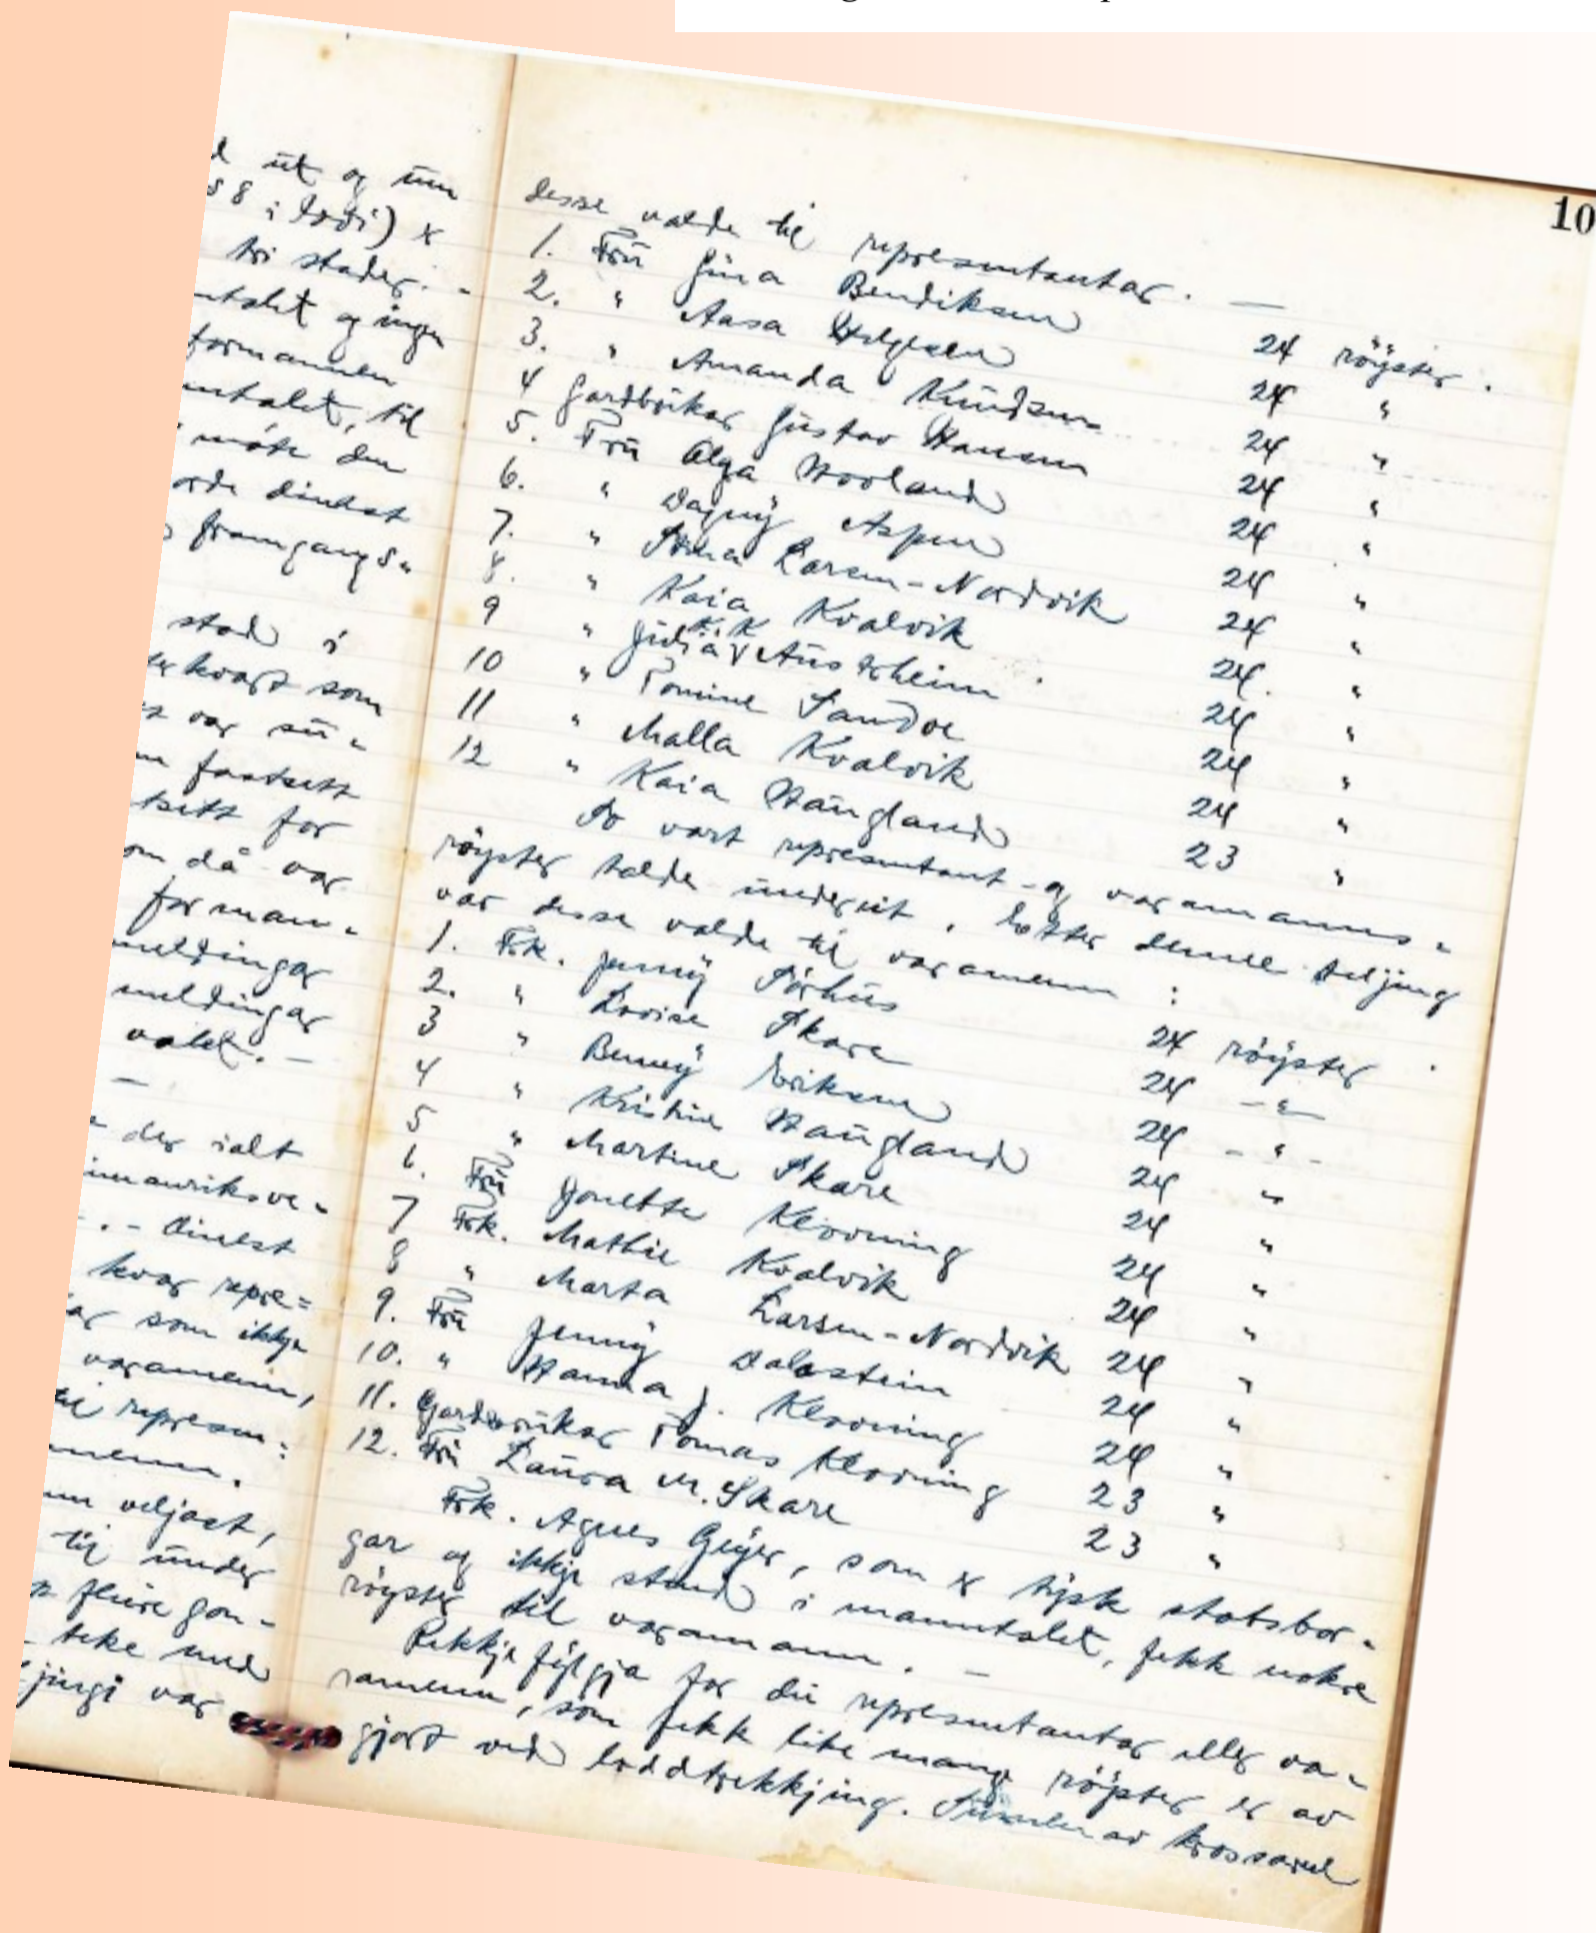 ut og inn
§ 8 i lovi) x
tri stader. -
og ingen
formannen
mtalet, til
møte den
dinest
framgangs-
stad i
kvart som
var
fastsett
tsett for
om då var
forman-
meldingar
meldingar
valet. -
der ialt
imannriksve-
. - Dinest
kvar repre=
ar som ikkje
varamenn,
til represen=
menn.
veljast,
til under
fleire gon-
teke med
jingi var
10
desse valde til representantar. —
1. Frü Gina Bendiksen 24 röyster.
2. " Aasa Helgesen 24 "
3. " Amanda Knüdsen 24 "
4 Gardbrükar Güstav Hansen 24 "
5. Frü Olga Hovland 24 "
6. " Dagny Aspen 24 "
7. " Larsen-Nordvik 24 "
8. " Kaia Kvalvik 24. "
9 " K. K Aüstrheim 24 "
10 " Tomine Sandve 24 "
11 " Malla Kvalvik 24 "
12 " Kaia Haügland 23 "
So vart representant- og varamanns-
röyster talde . Etter denne teljing
var desse valde til varamenn :
1. Frk. Jenny Sörhüs 24 röyster.
2. " Lovise Skare 24 - " -
3 " Benny Eriksen 24 - " -
4 " Kristine Haügland 24 "
5 " Martine Skare 24 "
6. Frü Jonette Klovning 24 "
7 Frk. Mathie Kvalvik 24 "
8 " Marta Larsen-Nordvik 24 "
9. Frü Jenny Dalastein 24 "
10. " Hanna J. Klovning 24 "
11. Gardbrükar Tomas Klovning 23 "
12. Frü Laüra M. Skare 23 "
Frk. Agnes Geyer, som er tysk statsbor-
gar og ikkje stend i manntalet, fekk nokre
röyster til varamann. —
Rekkjefylgja for dei representantar eller va-
ramenn, som fekk like mange röyster er av
gjort ved loddtrekkjing. av krossane